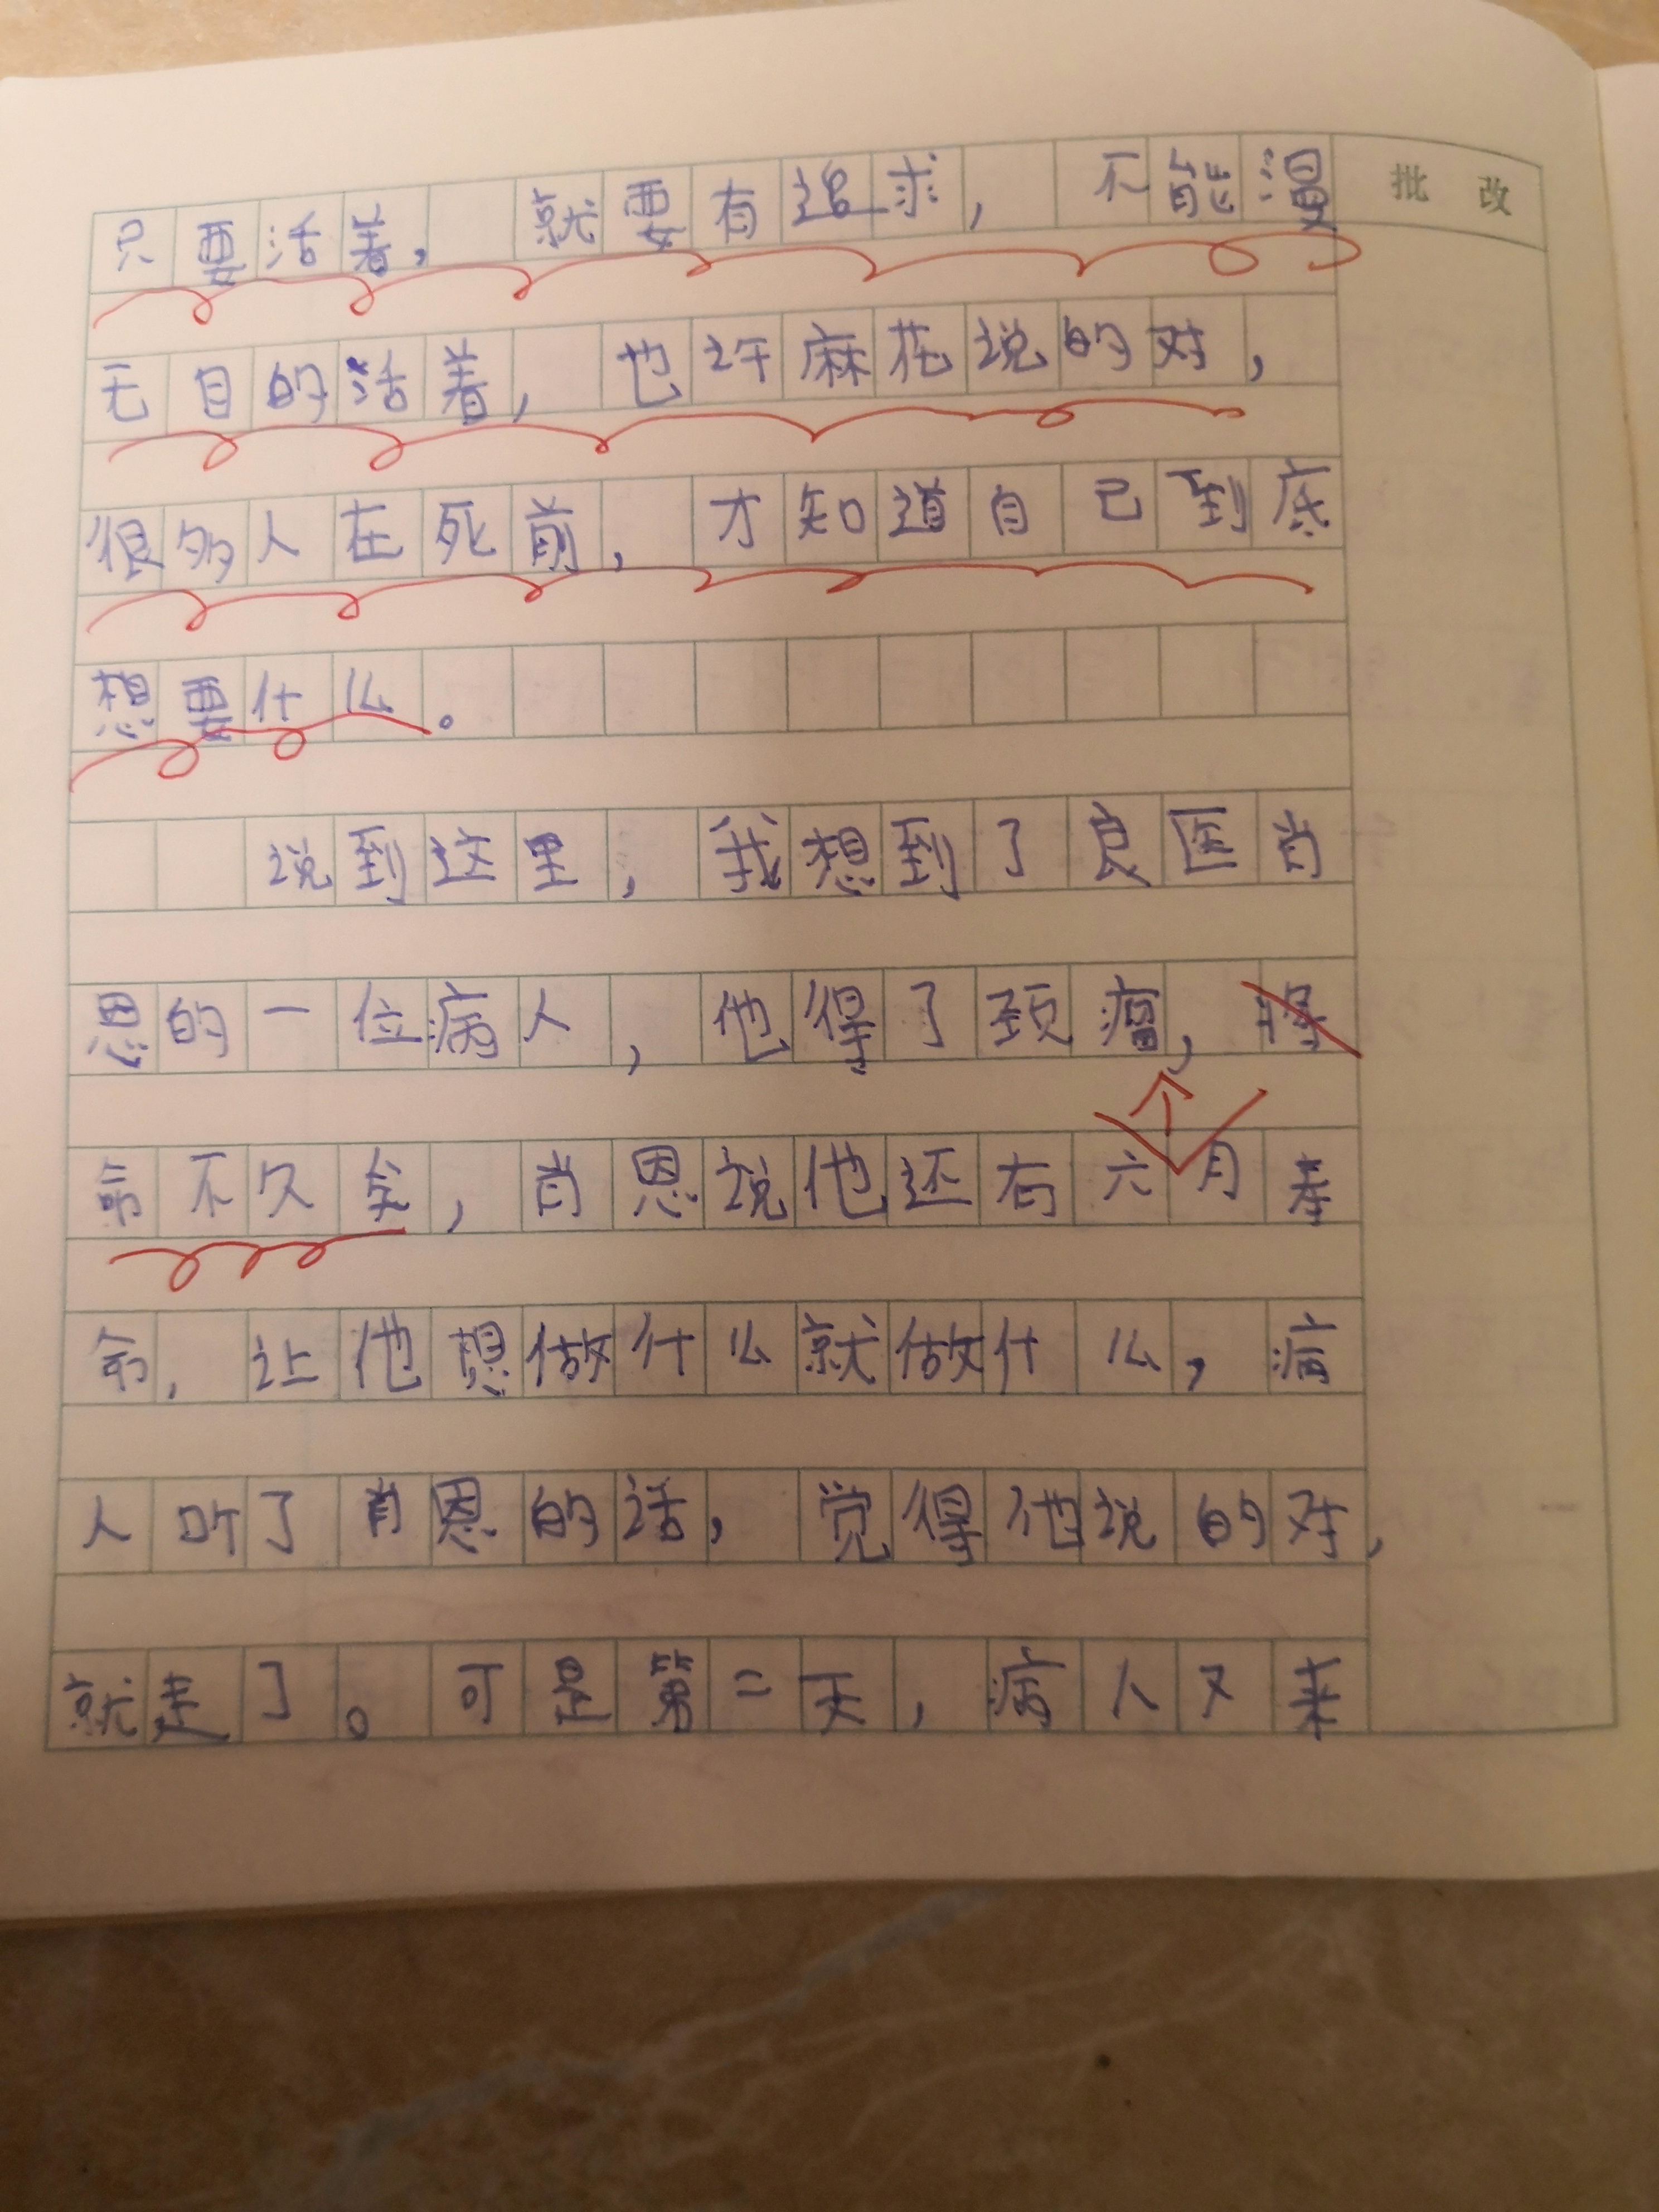 批 改
只要活着，就要有追求，不能漫
无目的活着，也许麻花说的对，
很多人在死前，才知道自己到底
想要什么。
说到这里，我想到了良医肖
恩的一位病人，他得了颈瘤，将
命不久矣，肖恩说他还有六个月寿
命，让他想做什么就做什么，病
人听了肖恩的话，觉得他说的对，
就走了。可是第二天，病人又来